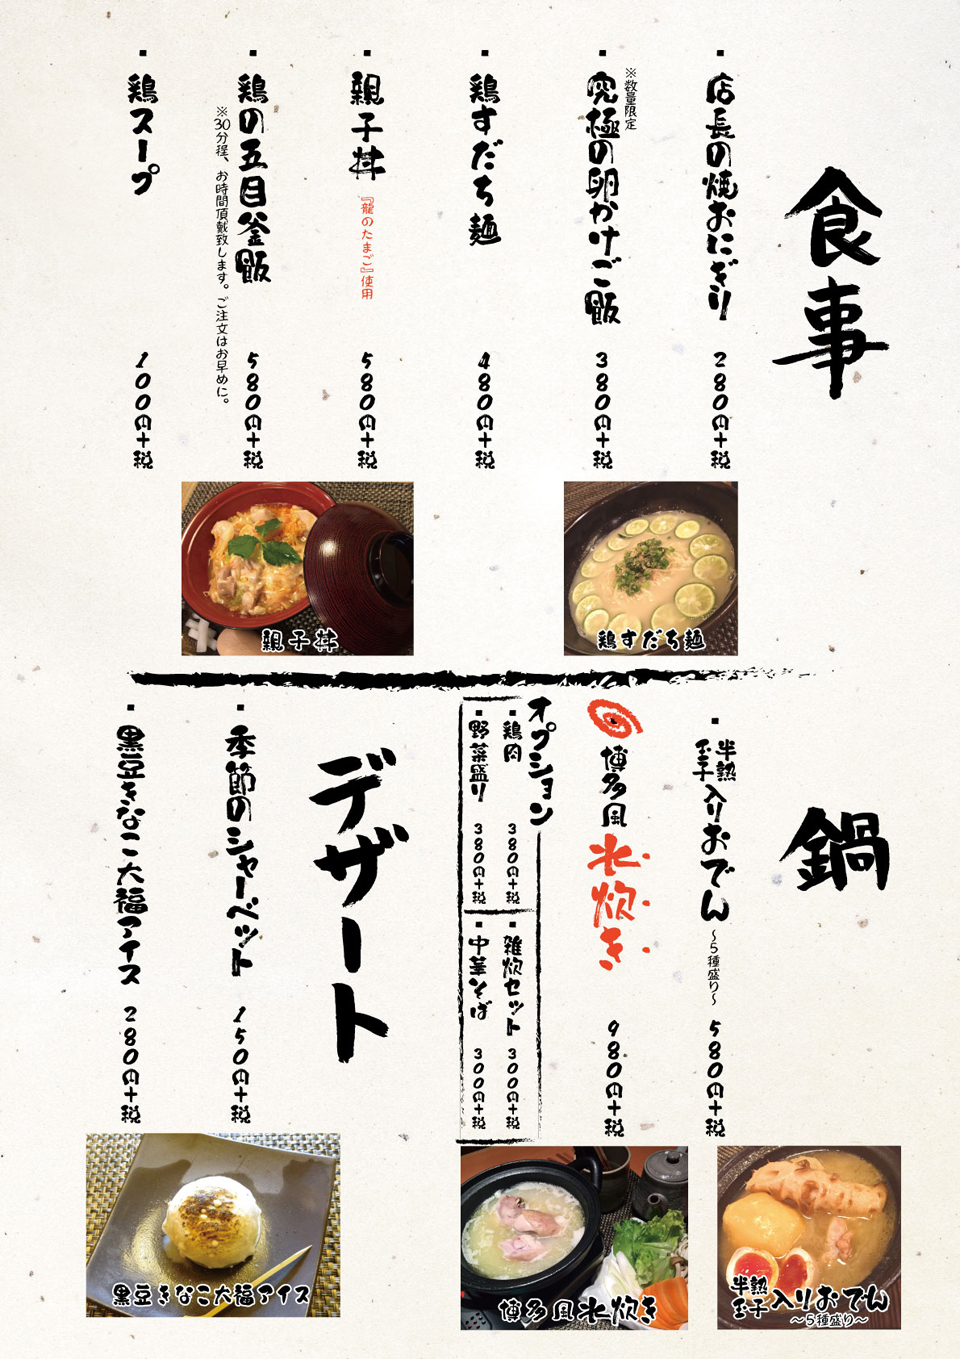 食事
・店長の焼おにぎり 280円+税
※数量限定
・究極の卵かけご飯 380円+税
・鶏すだち麺 480円+税
・親子丼 『龍のたまご』使用 580円+税
・鶏の五目釜飯 580円+税
※30分程、お時間頂戴致します。ご注文はお早めに。
・鶏スープ 100円+税
親子丼
鶏すだち麺
鍋
・半熟玉子入りおでん ～5種盛り～ 580円+税
博多風水炊き 980円+税
オプション
・鶏肉 380円+税
・野菜盛り 380円+税
・雑炊セット 300円+税
・中華そば 300円+税
デザート
・季節のシャーベット 150円+税
・黒豆きなこ大福アイス 280円+税
黒豆きなこ大福アイス
博多風水炊き
半熟玉子入りおでん
～5種盛り～